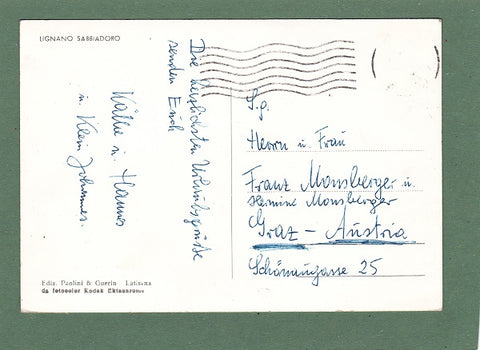 LIGNANO SABBIADORO
Die herzlichsten Urlaubsgrüße
senden Euch
Käthe u. Hannes
u. Klein Johannes.
S.g.
Herrn u. Frau
Franz Monsberger u.
Hermine Monsberger
Graz - Austria
Schönaugasse 25
Ediz. Paolini & Guerin Latisana
da fotocolor Kodak Ektachrome